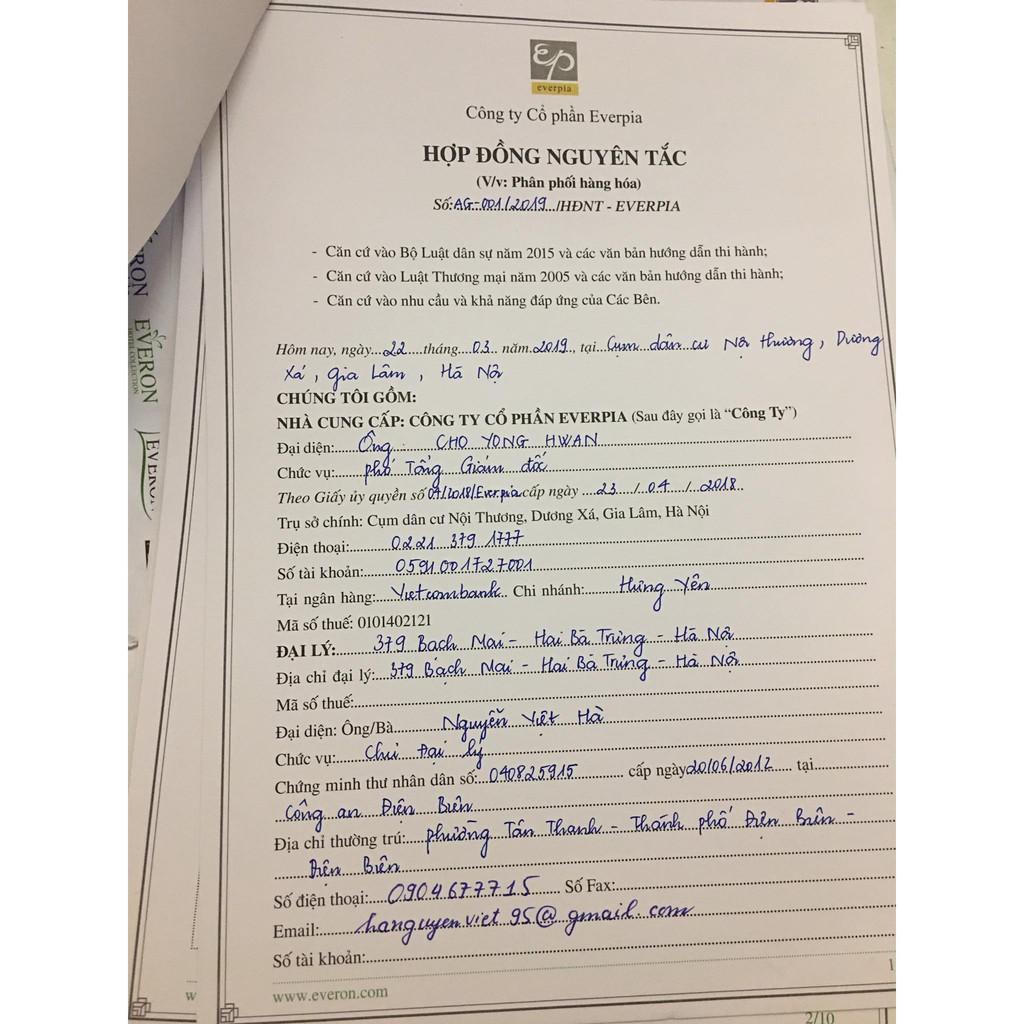 EP
everpia
Công ty Cổ phần Everpia
HỢP ĐỒNG NGUYÊN TẮC
(V/v: Phân phối hàng hóa)
Số:AG-001/2019../HĐNT - EVERPIA
- Căn cứ vào Bộ Luật dân sự năm 2015 và các văn bản hướng dẫn thi hành;
- Căn cứ vào Luật Thương mại năm 2005 và các văn bản hướng dẫn thi hành;
- Căn cứ vào nhu cầu và khả năng đáp ứng của Các Bên.
Hôm nay, ngày...22....tháng...03.. năm.2019., tại...Cụm dân cư Nội Thương, Dương
Xá, Gia Lâm, Hà Nội
CHÚNG TÔI GỒM:
NHÀ CUNG CẤP: CÔNG TY CỔ PHẦN EVERPIA (Sau đây gọi là “Công Ty”)
Đại diện:....Ông CHO YONG HWAN
Chức vụ:....Phó Tổng Giám đốc
Theo Giấy ủy quyền số 04/2018/Everpia cấp ngày ....23..../...04..../...2018..
Trụ sở chính: Cụm dân cư Nội Thương, Dương Xá, Gia Lâm, Hà Nội
Điện thoại:....0221 379 1777
Số tài khoản:....0591001727001
Tại ngân hàng:...Vietcombank.. Chi nhánh:....Hưng Yên
Mã số thuế: 0101402121
ĐẠI LÝ:....379 Bạch Mai - Hai Bà Trưng - Hà Nội
Địa chỉ đại lý:..379 Bạch Mai - Hai Bà Trưng - Hà Nội
Mã số thuế:
Đại diện: Ông/Bà....Nguyễn Việt Hà
Chức vụ:....Chủ Đại lý
Chứng minh thư nhân dân số:..040825915.... cấp ngày20/06/2012.... tại....
Công an Điện Biên
Địa chỉ thường trú:...phường Tân Thanh - Thành phố Điện Biên -
Điện Biên
Số điện thoại:...0904677715.... Số Fax:
Email:....hanguyenviet95@gmail.com
Số tài khoản:
1
www.everon.com
2/10
w
EVERON
HOTEL COLLECTION
EVERON
RON